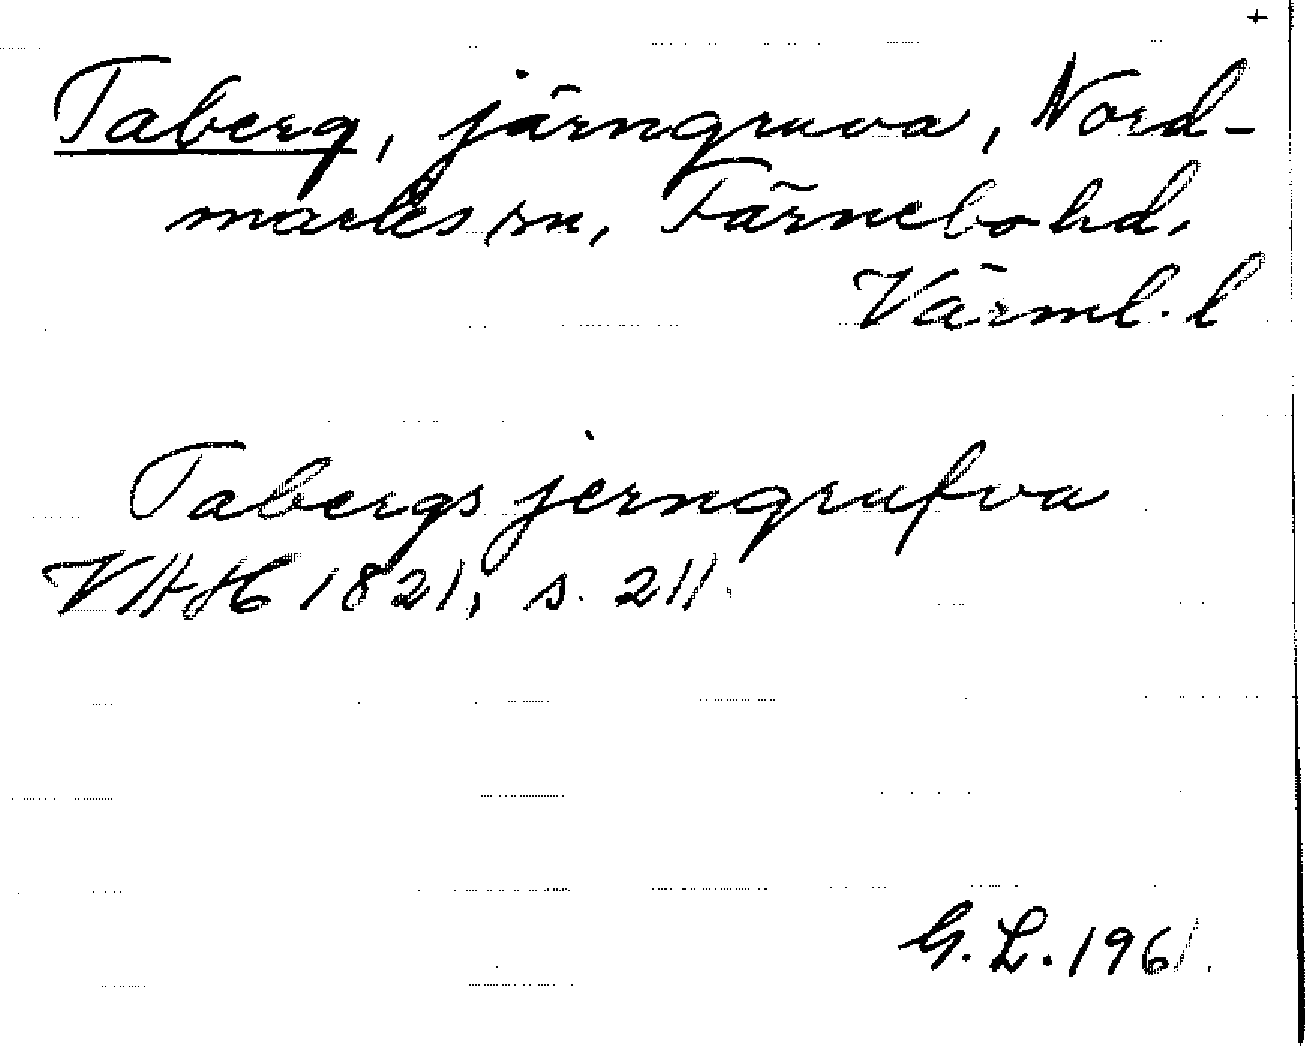 +
Taberg, järngruva, Nord-
marks sn, Färnebo hd.
Värml. l
Tabergs jerngrufva
VAH 1821, s. 211.
G. L. 1961.